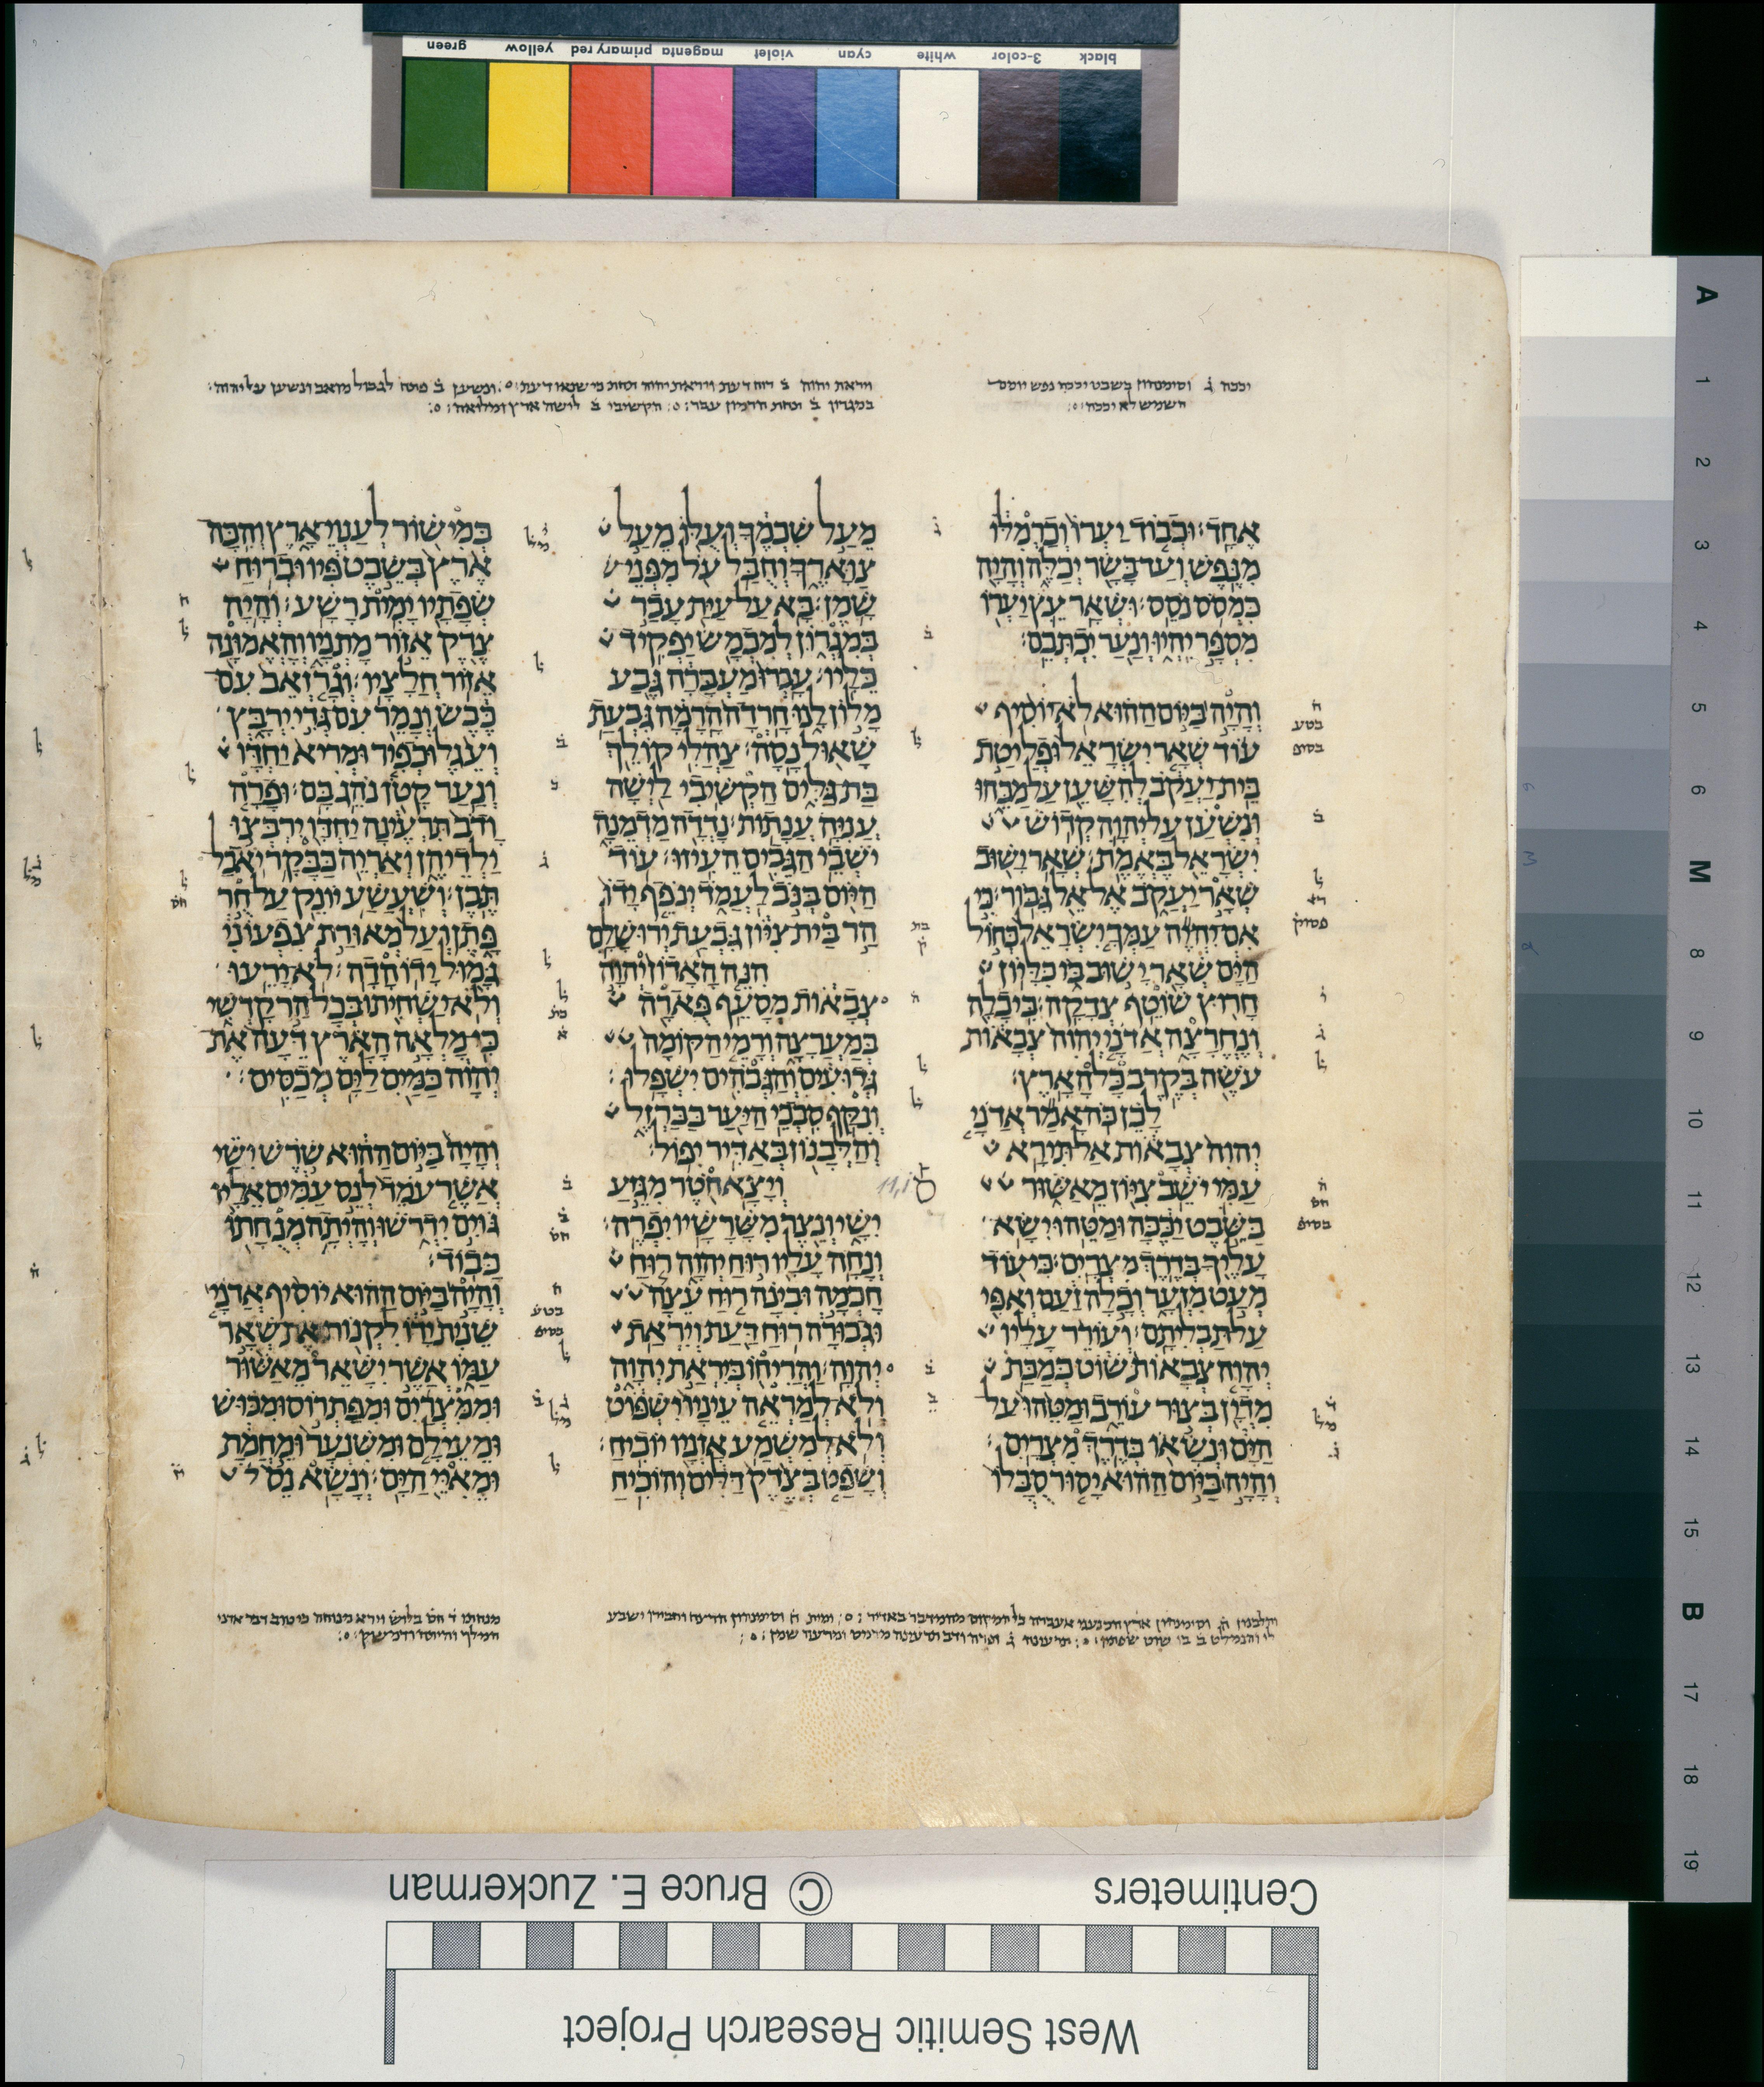 green yellow primary red magenta violet cyan white 3-color black
יככה ג֗ וסימנהון בשבט יככה נפש יומם
השמש לא יככה
ויראת יהוה ב֗ רוח דעת ויראת יהוה ותחת כי שנאו דעת ונשען ב֗ פותה לגבול מואב ונשען על יהוה
במגרון ב֗ ותחת הרמון עבר הקשיבי ב֗ לישה ארץ ומלואה
אֶחָד׃ וּכְב֤וֹד יַעְרוֹ֙ וְכַרְמִלּ֔וֹ
מִנֶּ֥פֶשׁ וְעַד־בָּשָׂ֖ר יְכַלֶּ֑ה וְהָיָ֖ה
כִּמְסֹ֥ס נֹסֵֽס׃ וּשְׁאָ֥ר עֵ֛ץ יַעְר֖וֹ
מִסְפָּ֣ר יִֽהְי֑וּ וְנַ֖עַר יִכְתְּבֵֽם׃
וְהָיָ֣ה בַּיּ֣וֹם הַה֗וּא לֹֽא־יוֹסִ֨יף
ע֜וֹד שְׁאָ֤ר יִשְׂרָאֵל֙ וּפְלֵיטַ֣ת
בֵּֽית־יַעֲקֹ֔ב לְהִשָּׁעֵ֖ן עַל־מַכֵּ֑הוּ
וְנִשְׁעַ֗ן עַל־יְהוָ֛ה קְד֥וֹשׁ
יִשְׂרָאֵ֖ל בֶּאֱמֶֽת׃ שְׁאָ֥ר יָשׁ֖וּב
שְׁאָ֣ר יַעֲקֹ֑ב אֶל־אֵ֖ל גִּבּֽוֹר׃ כִּ֣י
אִם־יִהְיֶ֞ה עַמְּךָ֤ יִשְׂרָאֵל֙ כְּח֣וֹל
הַיָּ֔ם שְׁאָ֖ר יָשׁ֣וּב בּ֑וֹ כִּלָּי֥וֹן
חָר֖וּץ שׁוֹטֵ֥ף צְדָקָֽה׃ כִּ֥י כָלָ֖ה
וְנֶחֱרָצָ֑ה אֲדֹנָ֤י יְהוִה֙ צְבָא֔וֹת
עֹשֶׂ֖ה בְּקֶ֥רֶב כָּל־הָאָֽרֶץ׃
לָכֵ֗ן כֹּֽה־אָמַ֞ר אֲדֹנָ֤י
יְהוִה֙ צְבָא֔וֹת אַל־תִּירָ֥א
עַמִּ֛י יֹשֵׁ֥ב צִיּ֖וֹן מֵֽאַשּׁ֑וּר
בַּשֵּׁ֣בֶט יַכֶּ֔כָּה וּמַטֵּ֥הוּ יִשָּֽׂא־
עָלֶ֖יךָ בְּדֶ֥רֶךְ מִצְרָֽיִם׃ כִּי־ע֖וֹד
מְעַ֣ט מִזְעָ֑ר וְכָ֣לָה זַ֔עַם וְאַפִּ֖י
עַל־תַּבְלִיתָֽם׃ וְעוֹרֵ֨ר עָלָ֜יו
יְהוָ֤ה צְבָאוֹת֙ שׁ֔וֹט כְּמַכַּ֥ת
מִדְיָ֖ן בְּצ֣וּר עוֹרֵ֑ב וּמַטֵּ֙הוּ֙ עַל־
הַיָּ֔ם וּנְשָׂא֖וֹ בְּדֶ֥רֶךְ מִצְרָֽיִם׃
וְהָיָ֣ה בַּיּ֣וֹם הַה֗וּא יָס֤וּר סֻבֳּלוֹ֙
מֵעַ֣ל שִׁכְמֶ֔ךָ וְעֻלּ֖וֹ מֵעַ֣ל
צַוָּארֶ֑ךָ וְחֻבַּ֥ל עֹ֖ל מִפְּנֵי־
שָֽׁמֶן׃ בָּ֥א עַל־עַיַּ֖ת עָבַ֣ר
בְּמִגְר֑וֹן לְמִכְמָ֖שׂ יַפְקִ֥יד
כֵּלָֽיו׃ עָ֚בְרוּ מַעְבָּרָ֔ה גֶּ֖בַע
מָל֣וֹן לָ֑נוּ חָֽרְדָה֙ הָֽרָמָ֔ה גִּבְעַ֥ת
שָׁא֖וּל נָֽסָה׃ צַהֲלִ֥י קוֹלֵ֖ךְ
בַּת־גַּלִּ֑ים הַקְשִׁ֥יבִי לַ֖יְשָׁה
עֲנִיָּ֥ה עֲנָתֽוֹת׃ נָדְדָ֖ה מַדְמֵנָ֑ה
יֹשְׁבֵ֥י הַגֵּבִ֖ים הֵעִֽיזוּ׃ ע֥וֹד
הַיּ֖וֹם בְּנֹ֣ב לַֽעֲמֹ֑ד יְנֹפֵ֤ף יָדוֹ֙
הַ֣ר בַּית־צִיּ֔וֹן גִּבְעַ֖ת יְרוּשָׁלִָֽם׃
הִנֵּ֤ה הָאָדוֹן֙ יְהוָ֣ה
צְבָא֔וֹת מְסָעֵ֥ף פֻּארָ֖ה
בְּמַעֲרָצָ֑ה וְרָמֵ֤י הַקּוֹמָה֙
גְּדֻעִ֔ים וְהַגְּבֹהִ֖ים יִשְׁפָּֽלוּ׃
וְנִקַּ֛ף סִֽבְכֵ֥י הַיַּ֖עַר בַּבַּרְזֶ֑ל
וְהַלְּבָנ֖וֹן בְּאַדִּ֥יר יִפּֽוֹל׃
11,1
וְיָצָ֥א חֹ֖טֶר מִגֵּ֣זַע
יִשָׁ֑י וְנֵ֖צֶר מִשָּׁרָשָׁ֥יו יִפְרֶֽה׃
וְנָחָ֥ה עָלָ֖יו ר֣וּחַ יְהוָ֑ה ר֧וּחַ
חָכְמָ֣ה וּבִינָ֗ה ר֤וּחַ עֵצָה֙
וּגְבוּרָ֔ה ר֥וּחַ דַּ֖עַת וְיִרְאַ֥ת
יְהוָֽה׃ וַהֲרִיח֖וֹ בְּיִרְאַ֣ת יְהוָ֑ה
וְלֹֽא־לְמַרְאֵ֤ה עֵינָיו֙ יִשְׁפּ֔וֹט
וְלֹֽא־לְמִשְׁמַ֥ע אָזְנָ֖יו יוֹכִֽיחַ׃
וְשָׁפַ֤ט בְּצֶ֙דֶק֙ דַּלִּ֔ים וְהוֹכִ֥יחַ
בְּמִישׁ֖וֹר לְעַנְוֵי־אָ֑רֶץ וְהִֽכָּה־
אֶ֙רֶץ֙ בְּשֵׁ֣בֶט פִּ֔יו וּבְר֥וּחַ
שְׂפָתָ֖יו יָמִ֥ית רָשָֽׁע׃ וְהָ֥יָה
צֶ֖דֶק אֵז֣וֹר מָתְנָ֑יו וְהָאֱמוּנָ֖ה
אֵז֥וֹר חֲלָצָֽיו׃ וְגָ֤ר זְאֵב֙ עִם־
כֶּ֔בֶשׂ וְנָמֵ֖ר עִם־גְּדִ֣י יִרְבָּ֑ץ
וְעֵ֨גֶל וּכְפִ֤יר וּמְרִיא֙ יַחְדָּ֔ו
וְנַ֥עַר קָטֹ֖ן נֹהֵ֥ג בָּֽם׃ וּפָרָ֤ה
וָדֹב֙ תִּרְעֶ֔ינָה יַחְדָּ֖ו יִרְבְּצ֣וּ
יַלְדֵיהֶ֑ן וְאַרְיֵ֖ה כַּבָּקָ֥ר יֹֽאכַל־
תֶּֽבֶן׃ וְשִֽׁעֲשַׁ֥ע יוֹנֵ֖ק עַל־חֻ֣ר
פָּ֑תֶן וְעַל֙ מְאוּרַ֣ת צִפְעוֹנִ֔י
גָּמ֖וּל יָד֥וֹ הָדָֽה׃ לֹֽא־יָרֵ֥עוּ
וְלֹֽא־יַשְׁחִ֖יתוּ בְּכָל־הַ֣ר קָדְשִׁ֑י
כִּֽי־מָלְאָ֣ה הָאָ֗רֶץ דֵּעָה֙ אֶת־
יְהוָ֔ה כַּמַּ֖יִם לַיָּ֥ם מְכַסִּֽים׃
וְהָיָה֙ בַּיּ֣וֹם הַה֔וּא שֹׁ֣רֶשׁ יִשַׁ֗י
אֲשֶׁ֤ר עֹמֵד֙ לְנֵ֣ס עַמִּ֔ים אֵלָ֖יו
גּוֹיִ֣ם יִדְרֹ֑שׁוּ וְהָיְתָ֥ה מְנֻחָת֖וֹ
כָּבֽוֹד׃
וְהָיָ֣ה בַּיּ֣וֹם הַה֗וּא יוֹסִ֨יף אֲדֹנָ֤י
שֵׁנִית֙ יָד֔וֹ לִקְנ֖וֹת אֶת־שְׁאָ֣ר
עַמּ֑וֹ אֲשֶׁ֣ר יִשָּׁאֵר֩ מֵאַשּׁ֨וּר
וּמִמִּצְרַ֜יִם וּמִפַּתְר֣וֹס וּמִכּ֗וּשׁ
וּמֵעֵילָ֤ם וּמִשִּׁנְעָר֙ וּמֵ֣חֲמָ֔ת
וּמֵאִיֵּ֖י הַיָּֽם׃ וְנָשָׂ֥א נֵס֙ ל
והלבנון
מנחתו
Centimeters © Bruce E. Zuckerman
West Semitic Research Project
A 1 2 3 4 5 6 M 8 9 10 11 12 13 14 15 B 17 18 19